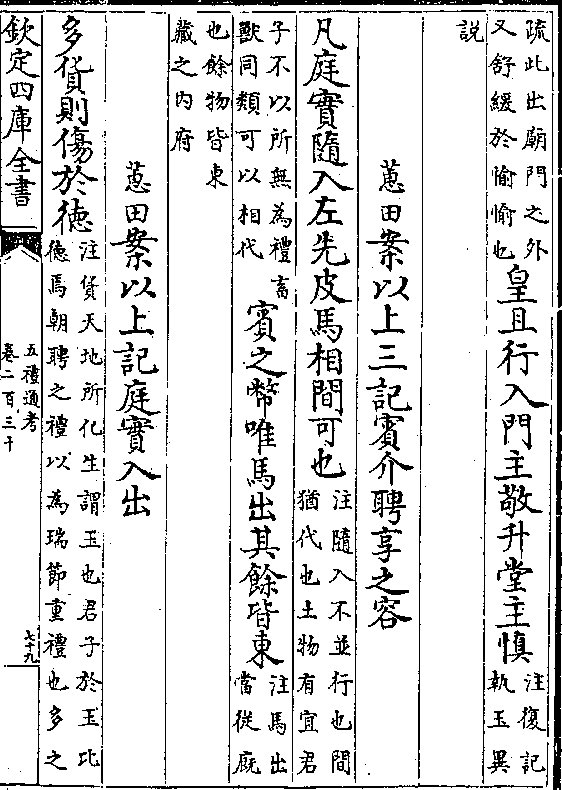 疏此出廟門之外
又舒緩於愉愉也
皇且行入門主敬升堂主慎
注復記
執玉異
說
蕙田案以上三記賓介聘享之容
凡庭實隨入左先皮馬相間可也
注隨入不並行也間
猶代也土物有宜君
子不以所無為禮畜
獸同類可以相代
賓之幣唯馬出其餘皆東
注馬出
當從厩
也餘物皆東
藏之内府
蕙田案以上記庭實入出
多貨則傷於德
注貨天地所化生謂玉也君子於玉比
德焉朝聘之禮以為瑞節重禮也多之
欽定四庫全書
五禮通考
卷二百三十
七十九